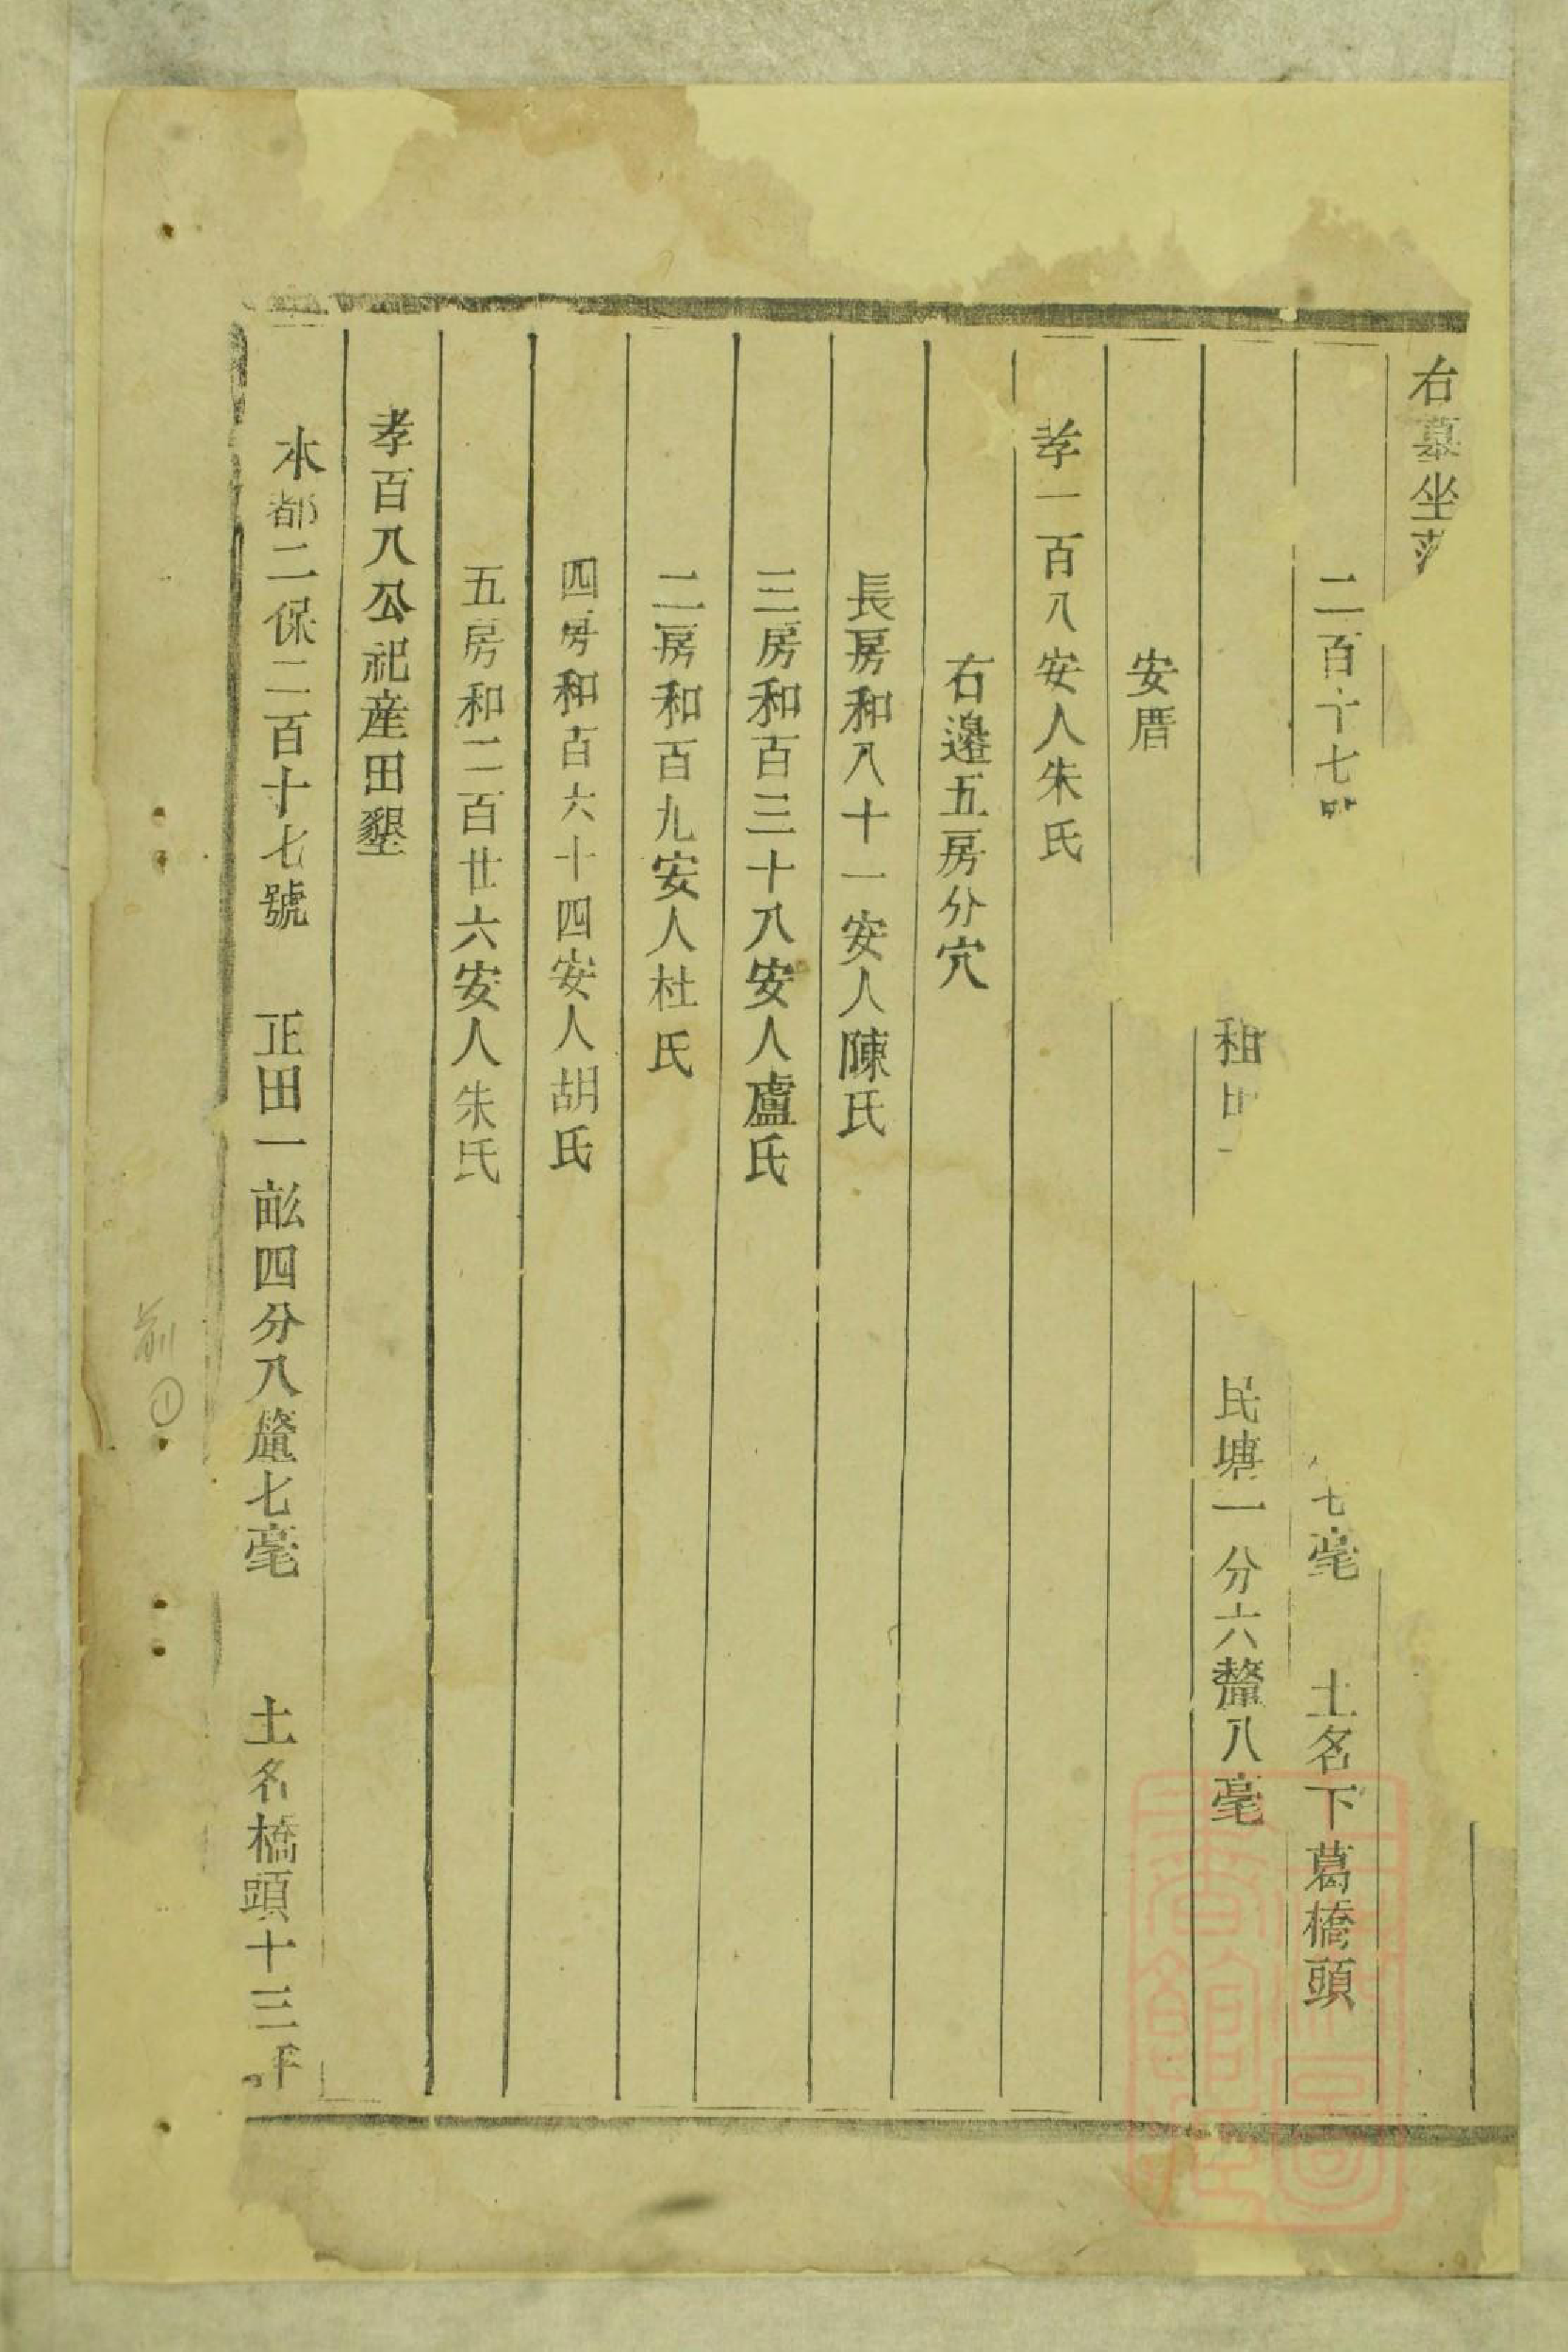 右墓坐
二百十七 七毫 土名下葛橋頭
租 民塘一分六釐八毫
安厝
孝一百八安人朱氏
右邊五房分穴
長房和八十一安人陳氏
三房和百三十八安人盧氏
二房和百九安人杜氏
四房和百六十四安人胡氏
五房和二百廿六安人朱氏
孝百八公祀産田墾
本都二保二百十七號 正田一畝四分八釐七毫 土名橋頭十三
前①